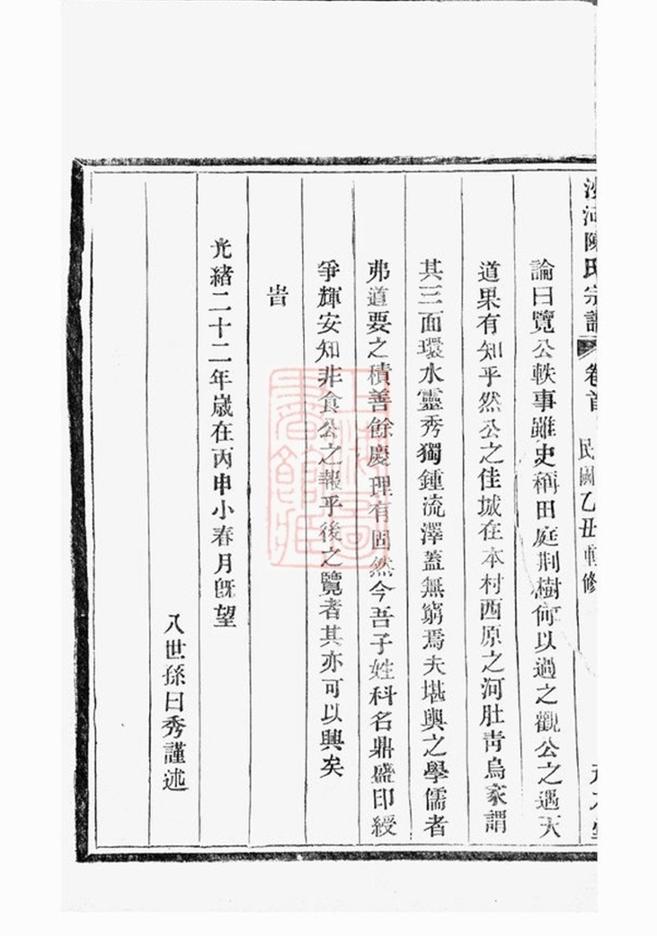 沙河陳氏宗譜 卷首 民國乙丑
論曰覽公軼事雖史稱田庭荆樹何以過之觀公之遇天
道果有知乎然公之佳城在本村西原之河肚青烏家謂
其三面環水靈秀獨鍾流澤蓋無窮焉夫堪輿之學儒者
弗道要之積善餘慶理有固然今吾子姓科名鼎盛印綬
爭輝安知非食公之報乎後之覽者其亦可以興矣
旹
光緒二十二年歲在丙申小春月旣望
八世孫曰秀謹述